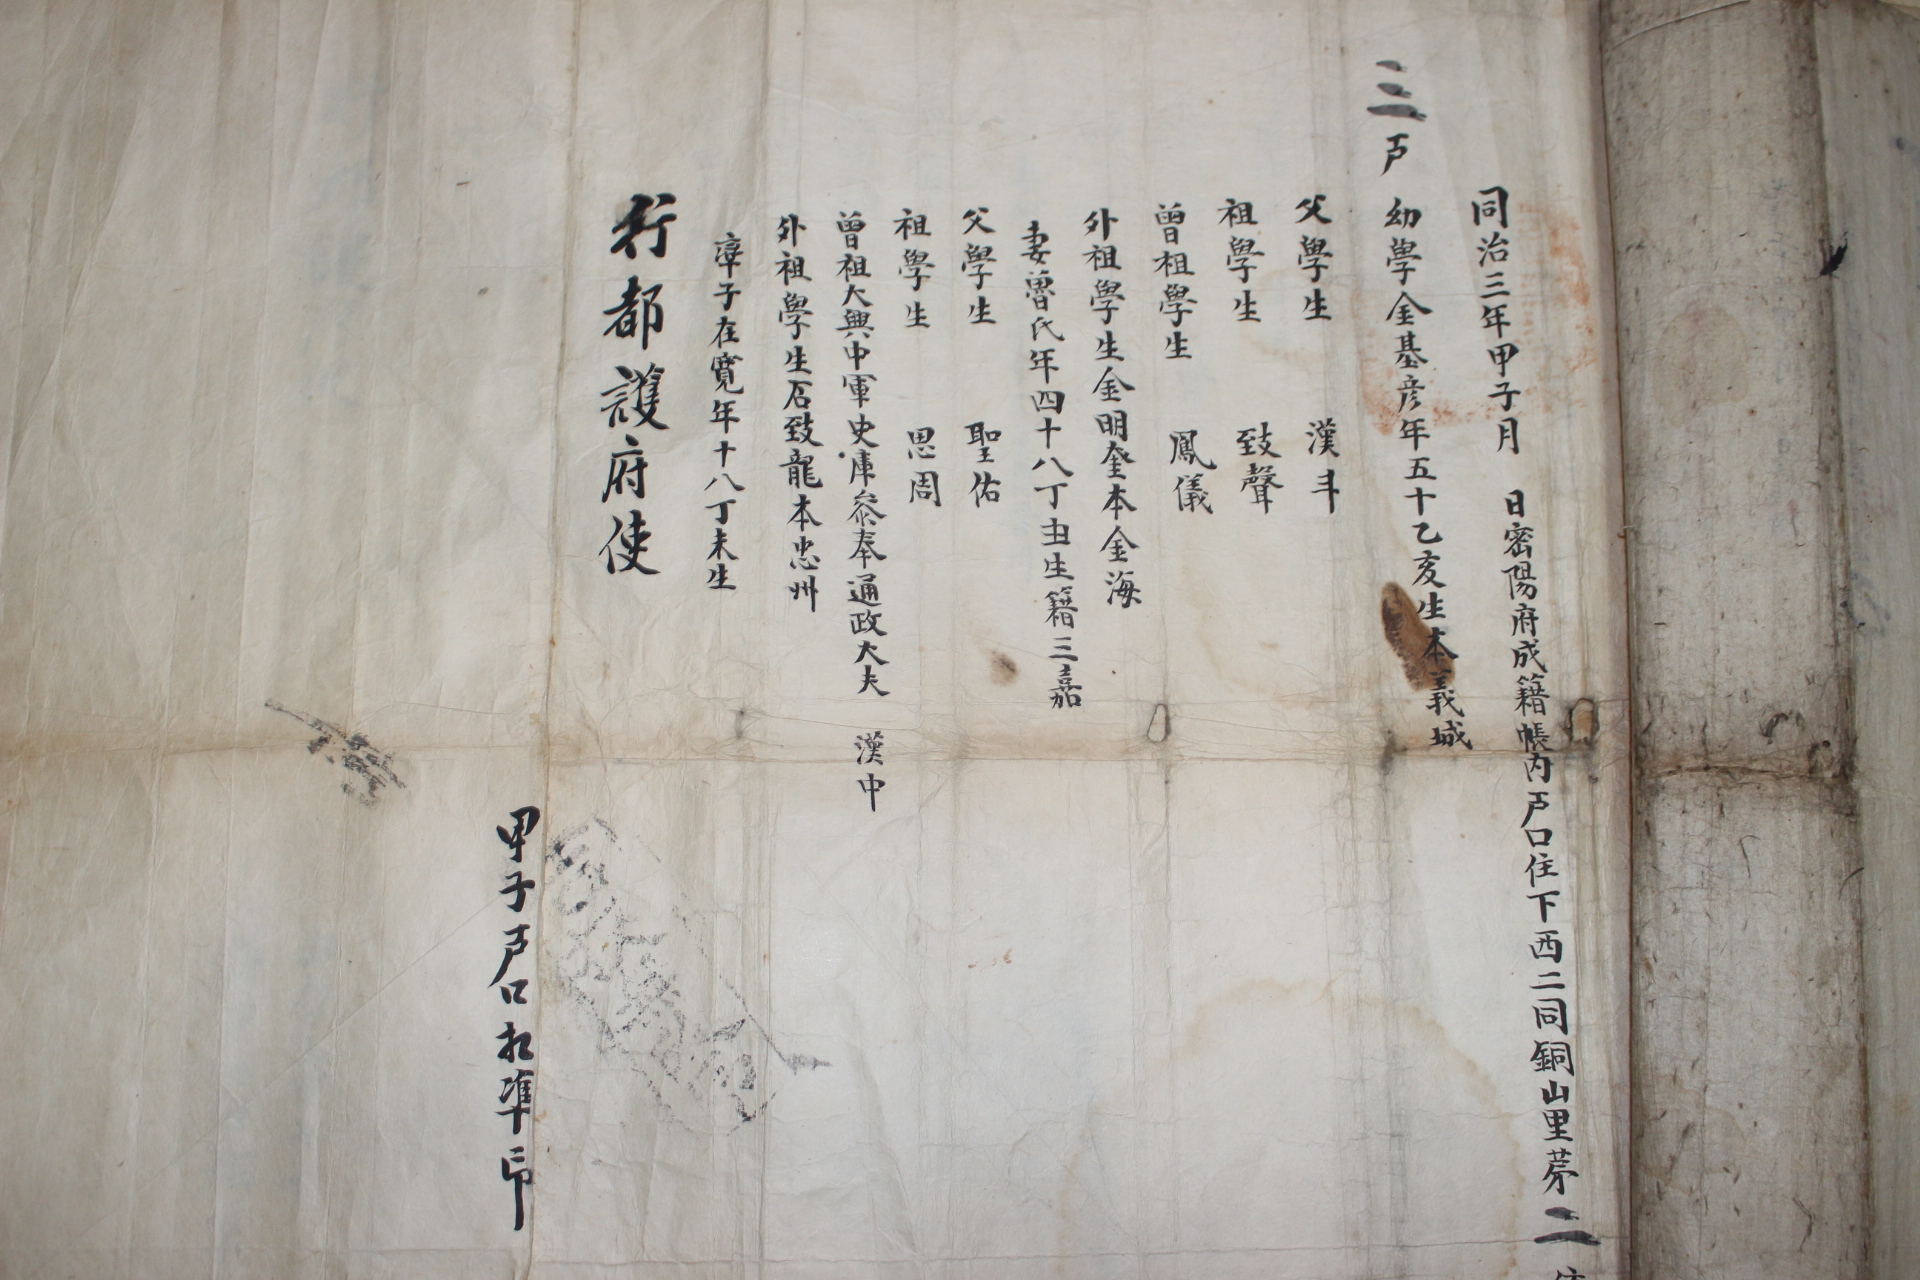 同治三年甲子月 日密陽府成籍帳內戶口住下西二同銅山里苐二
三戶 幼學金基彦年五十乙亥生本義城
父學生 漢斗
祖學生 致聲
曾祖學生 鳳儀
外祖學生金明奎本金海
妻魯氏年四十八丁丑生籍三嘉
父學生 聖佑
祖學生 思周
曾祖大興中軍史庫叅奉通政大夫 漢中
外祖學生石致龍本忠州
率子在寬年十八丁未生
行都護府使
甲子戶口相準印